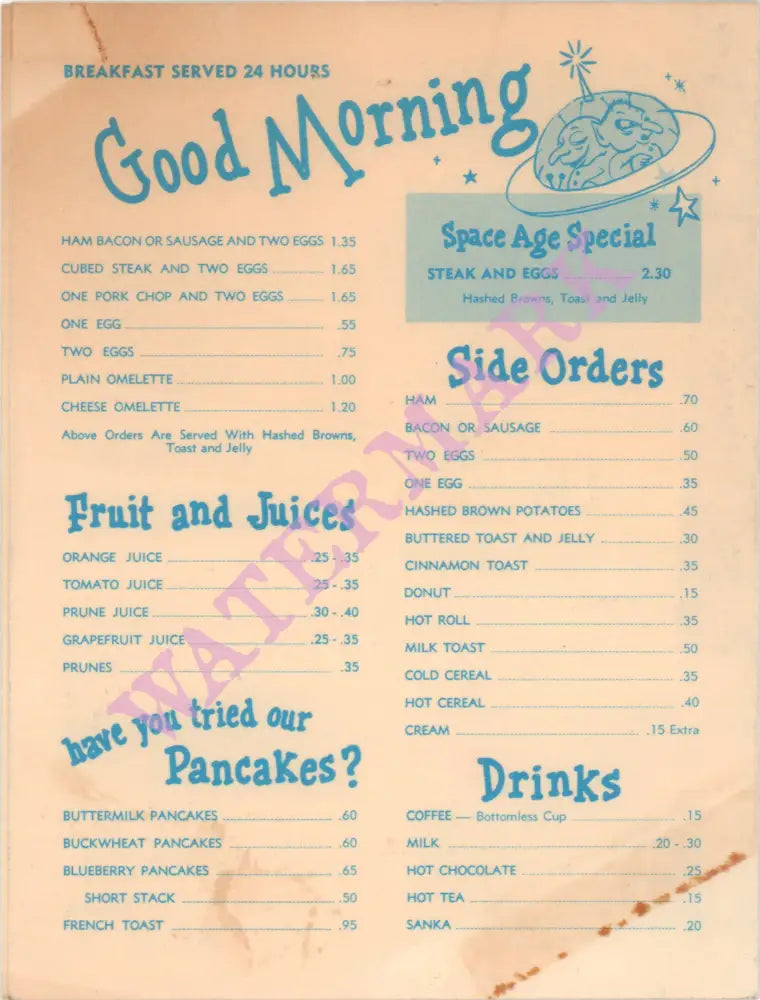 BREAKFAST SERVED 24 HOURS
Good Morning
HAM BACON OR SAUSAGE AND TWO EGGS 1.35
CUBED STEAK AND TWO EGGS 1.65
ONE PORK CHOP AND TWO EGGS 1.65
ONE EGG .55
TWO EGGS .75
PLAIN OMELETTE 1.00
CHEESE OMELETTE 1.20
Above Orders Are Served With Hashed Browns,
Toast and Jelly
Fruit and Juices
ORANGE JUICE .25 - .35
TOMATO JUICE .25 - .35
PRUNE JUICE .30 - .40
GRAPEFRUIT JUICE .25 - .35
PRUNES .35
have you tried our
Pancakes?
BUTTERMILK PANCAKES .60
BUCKWHEAT PANCAKES .60
BLUEBERRY PANCAKES .65
SHORT STACK .50
FRENCH TOAST .95
Space Age Special
STEAK AND EGGS 2.30
Hashed Browns, Toast and Jelly
Side Orders
HAM .70
BACON OR SAUSAGE .60
TWO EGGS .50
ONE EGG .35
HASHED BROWN POTATOES .45
BUTTERED TOAST AND JELLY .30
CINNAMON TOAST .35
DONUT .15
HOT ROLL .35
MILK TOAST .50
COLD CEREAL .35
HOT CEREAL .40
CREAM .15 Extra
Drinks
COFFEE — Bottomless Cup .15
MILK .20 - .30
HOT CHOCOLATE .25
HOT TEA .15
SANKA .20
WATERMARK